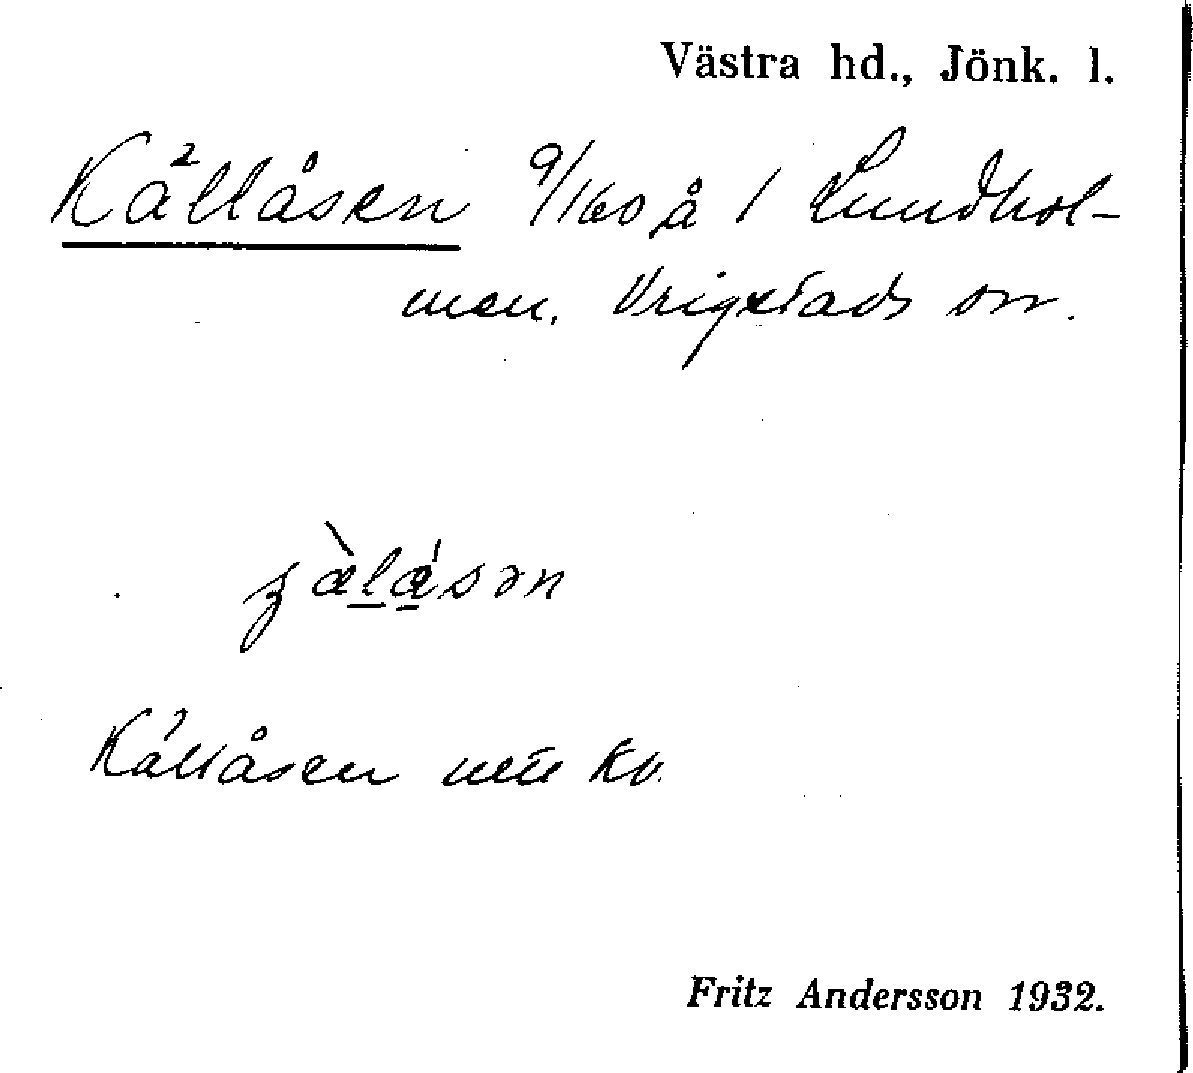 Västra hd., Jönk. l.
Källåsen 9/160 å 1 Lundhol-
men. Vrigstads sn.
Källåsen
Fritz Andersson 1932.